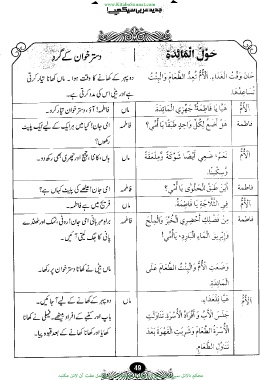 www.KitaboSunnat.com
جدید عربی سیکھیے!
حَوْلَ الْمَائِدَةِ
دسترخوان کے گرد
حَانَ وَقْتُ الْغَدَاءِ، الْأُمُّ تُعِدُّ الطَّعَامَ وَالْبِنْتُ
تُسَاعِدُهَا
دوپہر کے کھانے کا وقت ہوا۔ ماں کھانا تیار کرتی
ہے اور بیٹی اس کی مدد کرتی ہے۔
الْأُمُّ
هَيَّا يَا فَاطِمَةُ! جَهِّزِي الْمَائِدَةَ
ماں
فاطمہ! آؤ، دسترخوان تیار کرو۔
فاطمة
هَلْ أَضَعُ لِكُلِّ وَاحِدٍ طَبَقًا يَا أُمِّي؟
فاطمہ
امی جان! کیا میں ہر ایک کے لیے ایک پلیٹ
رکھوں؟
الْأُمُّ
نَعَمْ، ضَعِي أَيْضًا شَوْكَةً وَمِلْعَقَةً
وَسِكِّينًا.
ماں
ہاں، کانٹا، چمچ اور چھری بھی رکھ دو۔
فاطمة
أَيْنَ طَبَقُ الْحَلْوَى يَا أُمِّي؟
فاطمہ
امی! میٹھے کی پلیٹ کہاں ہے؟
الْأُمُّ
فِي الثَّلَّاجَةِ يَا فَاطِمَةُ.
ماں
فریج میں ہے فاطمہ۔
فاطمة
مِنْ فَضْلِكِ أَحْضِرِي الْخُبْزَ وَالْمِلْحَ
وَإِبْرِيقَ الْمَاءِ الْبَارِدِ، يَا أُمِّي!
فاطمہ
براہ مہربانی امی جان! روٹی، نمک اور ٹھنڈے
پانی کا جگ لیتی آئیں۔
وَضَعَتِ الْأُمُّ وَالْبِنْتُ الطَّعَامَ عَلَى
الْمَائِدَةِ.
ماں بیٹی نے کھانا دسترخوان پر رکھا۔
الْأُمُّ
هَيَّا لِلْغَدَاءِ.
ماں
دوپہر کے کھانے کے لیے آ جائیں۔
جَلَسَ الْأَبُ وَأَفْرَادُ الْأُسْرَةِ تَنَاوَلَتِ
الْأُسْرَةُ الطَّعَامَ وَشَرِبَتِ الْقَهْوَةَ بَعْدَ
تَنَاوُلِ الطَّعَامِ.
باپ اور کنبے کے افراد بیٹھے، فیملی نے کھانا
کھایا اور کھانا کھانے کے بعد قہوہ پیا۔
49